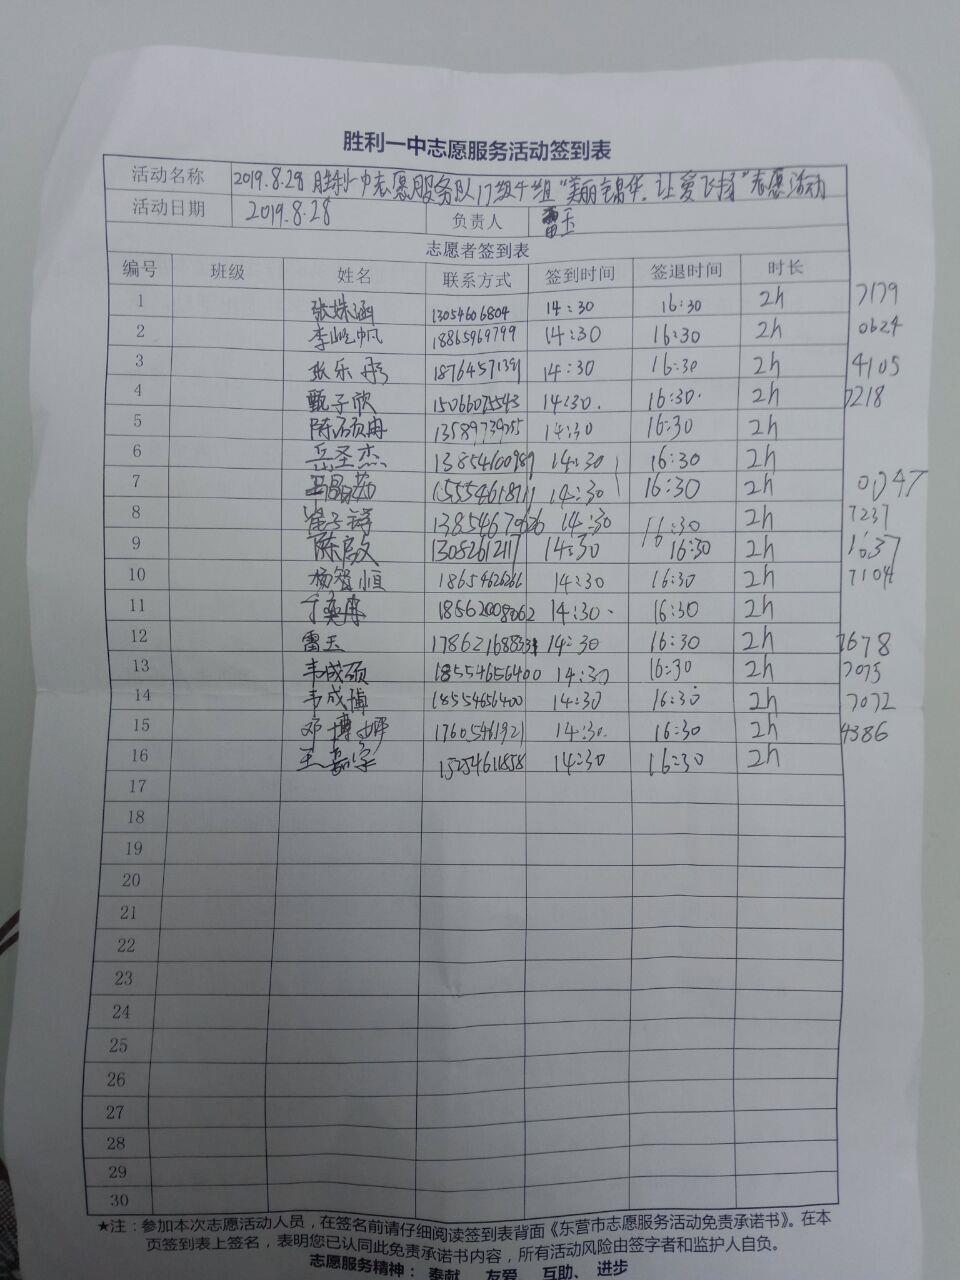 胜利一中志愿服务活动签到表
活动名称 2019.8.28 胜利一中志愿服务队17级4组"美丽锦华.让爱飞扬"志愿活动
活动日期 2019.8.28 负责人 雷玉
志愿者签到表
编号 班级 姓名 联系方式 签到时间 签退时间 时长
1 张姝涵 13054606804 14:30 16:30 2h 7179
2 李屹帆 18865969799 14:30 16:30 2h 0624
3 张乐彤 18764571391 14:30 16:30 2h 4105
4 甄子欣 15066075543 14:30. 16:30. 2h 7218
5 陈硕冉 13589739255 14:30 16:30 2h
6 岳圣杰 13854600989 14:30 16:30 2h
7 14:30 16:30 2h
8 崔子锌 13854679626 14:30 16:30 2h 7237
9 陈敏 14:30 16:30 2h 1637
10 杨智恒 14:30 16:30 2h 7104
11 于奕冉 18562008062 14:30. 16:30 2h
12 雷玉 14:30 16:30 2h 7678
13 韦成硕 18554656400 14:30 16:30 2h 7075
14 韦成博 18554656400 14:30 16:30 2h 7072
15 邓博 17605461921 14:30. 16:30 2h 4386
16 王嘉宇 15254611858 14:30 16:30 2h
17
18
19
20
21
22
23
24
25
26
27
28
29
30
★注：参加本次志愿活动人员，在签名前请仔细阅读签到表背面《东营市志愿服务活动免责承诺书》。在本
页签到表上签名，表明您已认同此免责承诺书内容，所有活动风险由签字者和监护人自负。
志愿服务精神： 奉献 友爱 互助、 进步